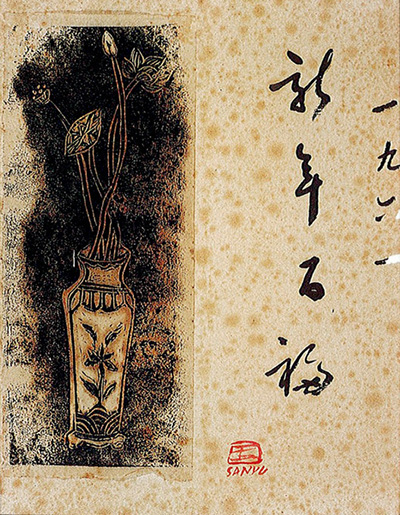 一九六一
新年百福
玉
SANYU